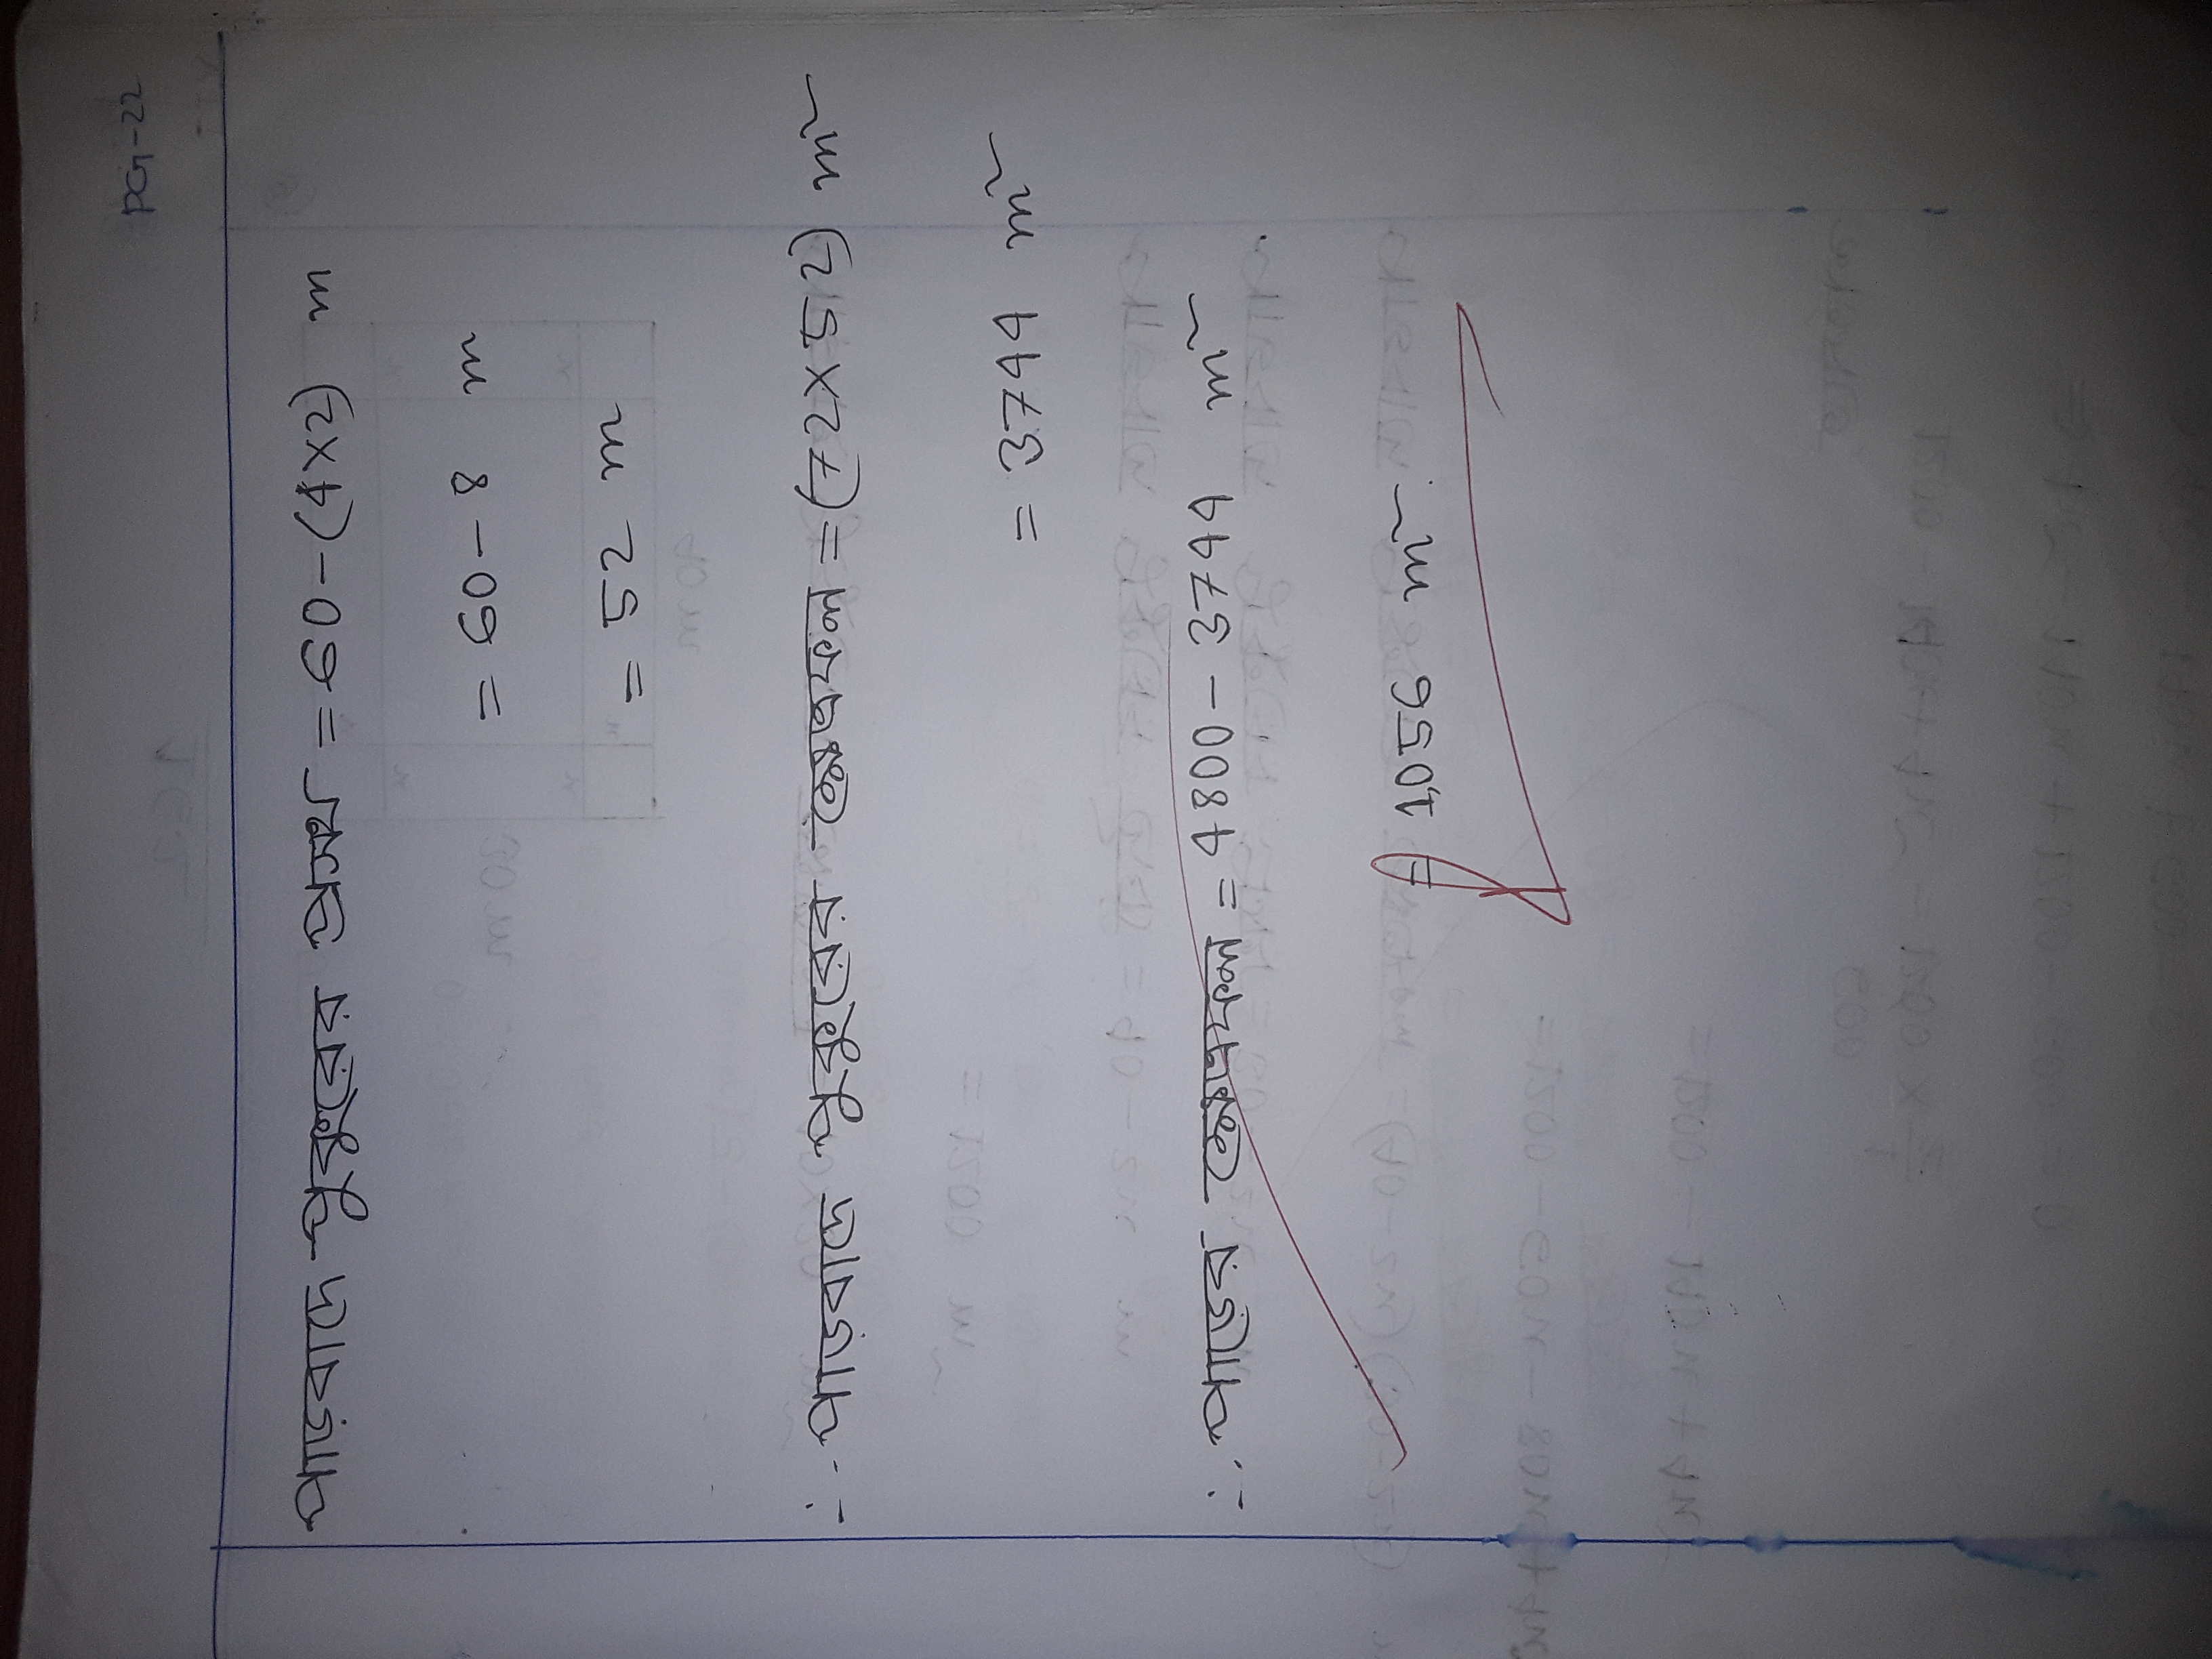 PG-22
পাড়বাদে পুকুরের প্রসথ = 60-(4×2) m
= 60-8 m
= 52 m
∴ পাড়বাদে পুকুরের ক্ষেত্রফল = (72×52) m²
= 3744 m²
∴ পাড়ের ক্ষেত্রফল = 4800-3744 m²
= 1,056 m².